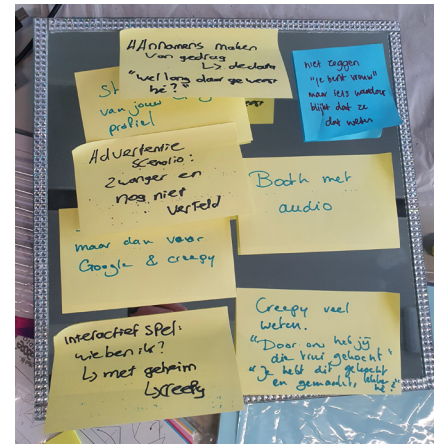 AAnnamens maken
van gedrag
↳ declam
"wel lang daar geweest
hè?"
niet zeggen
"je bent vrouw"
maar iets waardoor
blijkt dat ze
dat weten
St
van jouw
profiel
Advertentie
scenario:
zwanger en
nog niet
verteld
Booth met
audio
maar dan voor
Google & creepy
Interactief spel:
wie ben ik?
↳ met geheim
↳ creepy
Creepy veel
weten.
"Door ons heb jij
die trui gekocht"
"Je hebt dit gekocht
en gemaakt,
hè?"